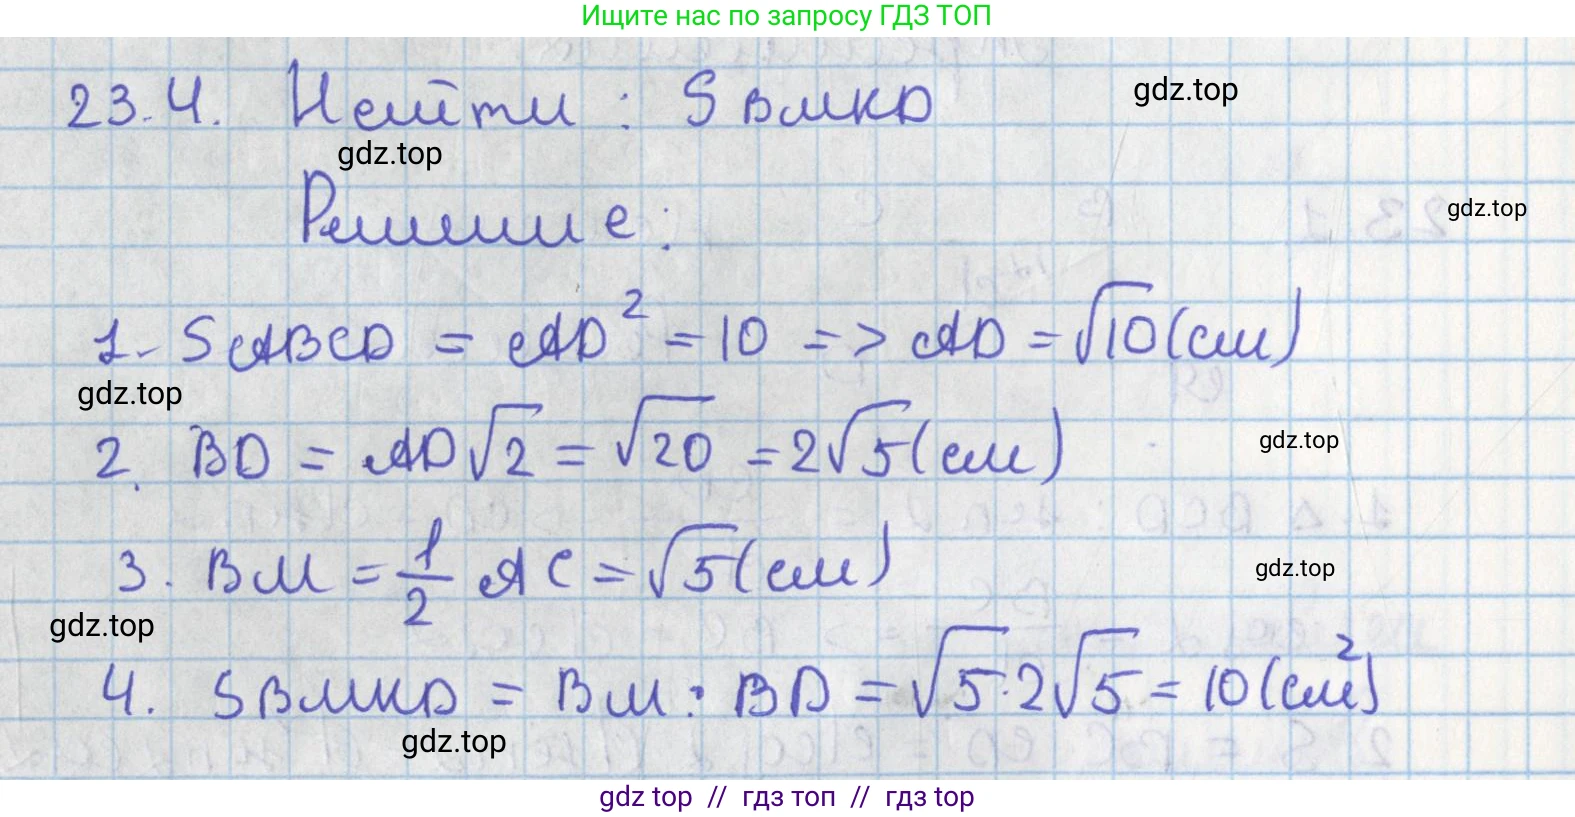 Ищите нас по запросу ГДЗ ТОП
23.4. Найти: S BMKD
gdz.top
gdz.top
Решение:
gdz.top
1. S ABCD = AD² = 10 => AD = √10 (см)
gdz.top
2. BD = AD√2 = √20 = 2√5 (см)
gdz.top
3. BM = 1/2 AC = √5 (см)
gdz.top
gdz.top
4. S BMKD = BM · BD = √5 · 2√5 = 10 (см²)
gdz.top
gdz top // гдз топ // gdz top